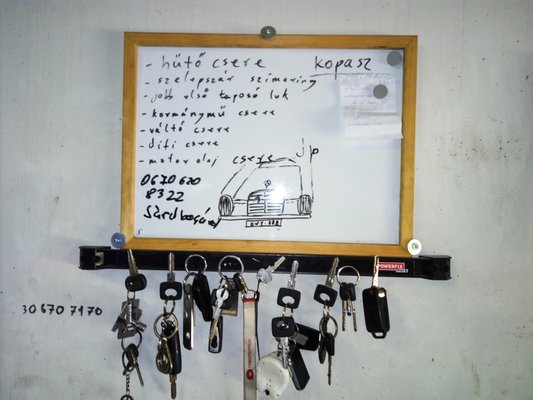 - hűtő csere
kopasz
- szelepszár szimering
- jobb első taposó luk
- kormánymű csere
- váltó csere
- difi csere
- motor olaj csere
0670 620
8322
POWERFIX
30 670 7170